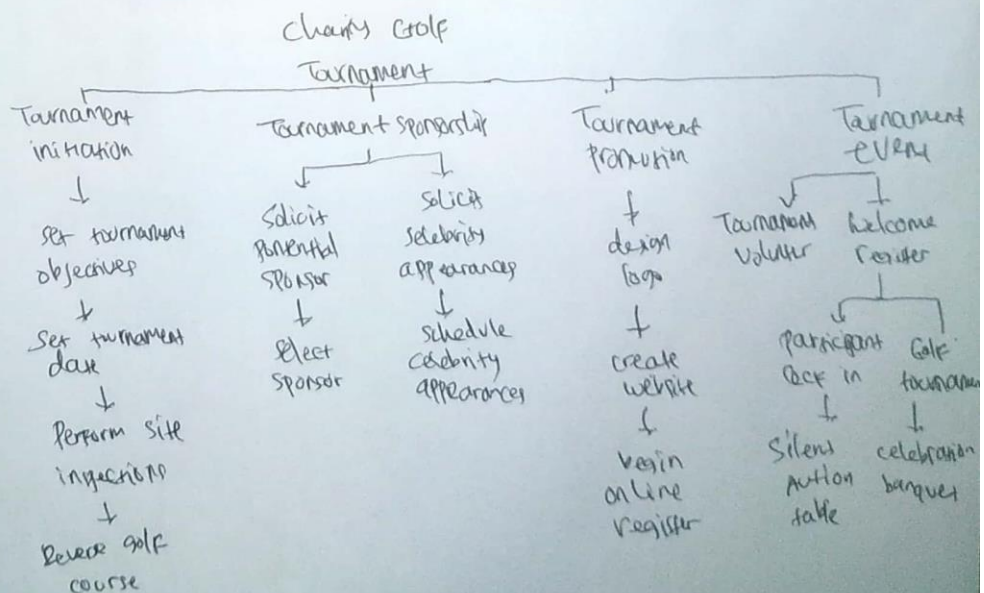 Charity Golf
Tournament
Tournament
initiation
set tournament
objectives
Set tournament
date
Perform site
inspections
Reserve golf
course
Tournament sponsorship
Solicit
potential
sponsor
select
sponsor
solicit
selebrity
appearances
schedule
celebrity
appearances
Tournament
Promotion
design
logo
create
website
begin
online
register
Tournament
event
Tournament
volunter
welcome
register
participant
in
Silent
Aution
table
Golf
tournamen
celebration
banquet